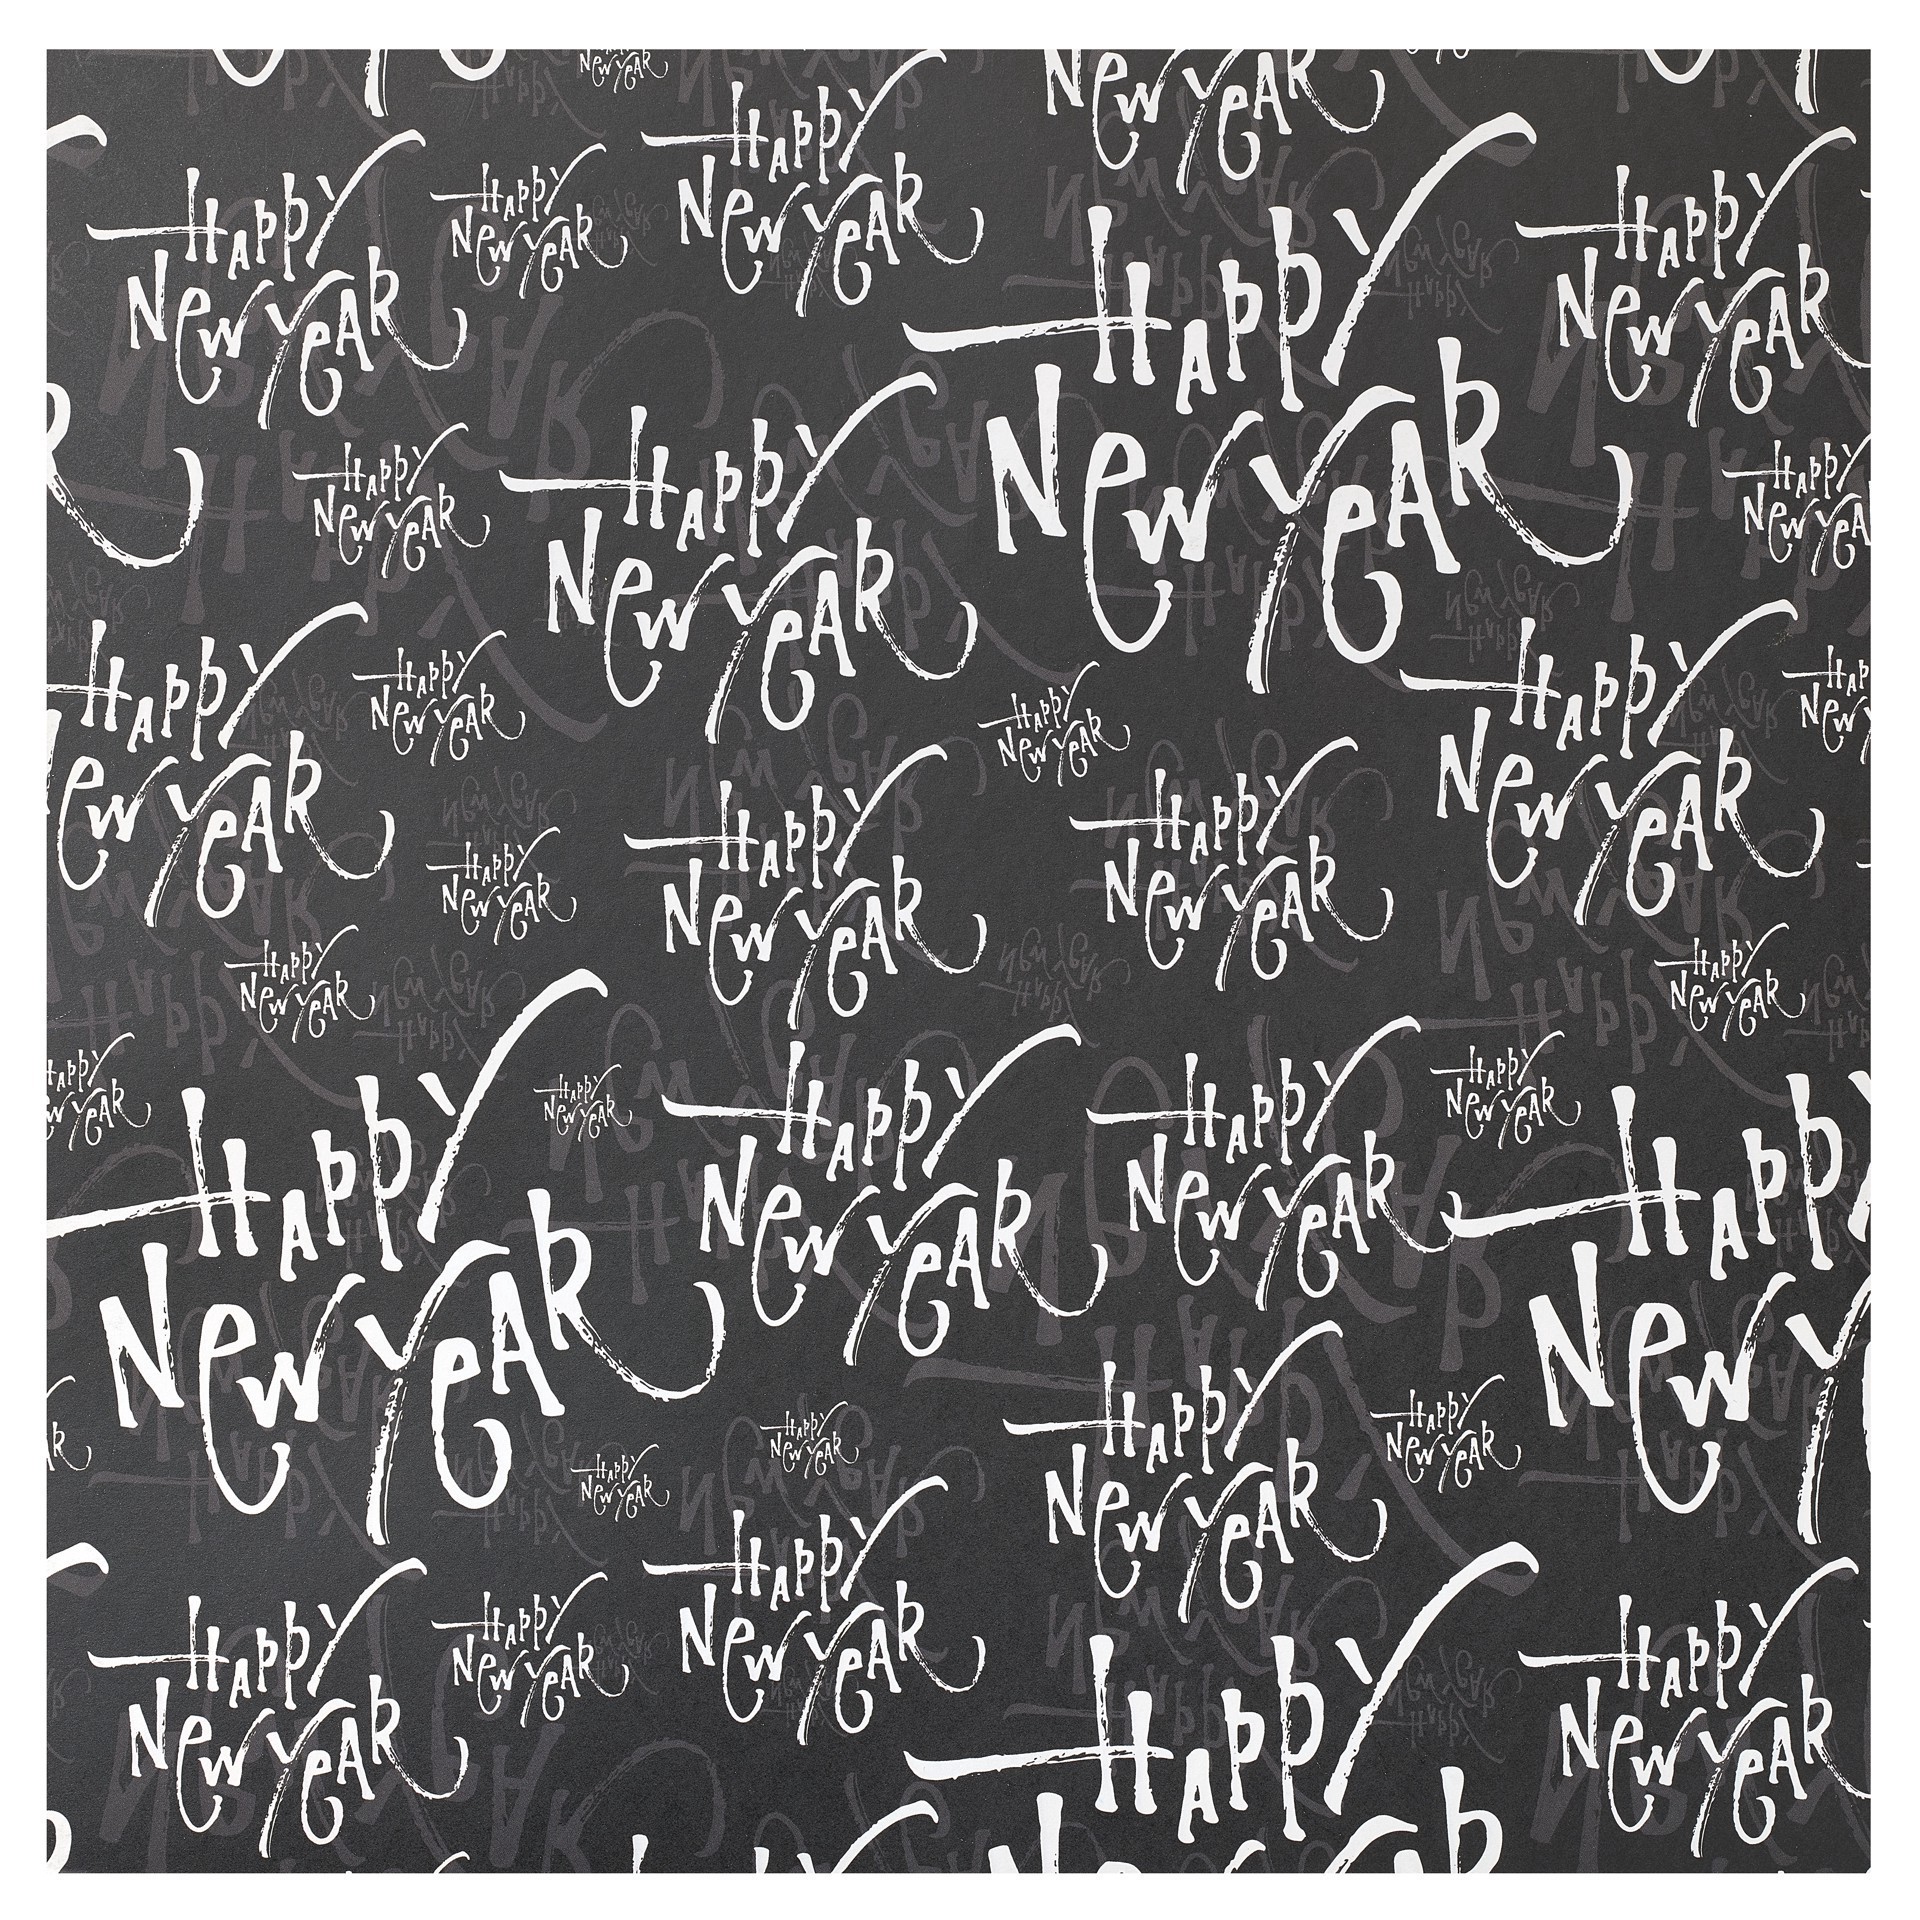 New Year
New Year
Happy
New Year
Happy
New Year
Happy
New Year
Happy
New Year
Happy
New Year
Happy
New Year
Happy
New Year
Happy
New Yea
Happy
New Year
Happy
New Year
Happy
New Year
Happy
New Year
Hap
New Y
Happy
New Year
Happy
New Year
Happy
New Year
Happy
New Year
Happy
New Year
Happy
New Year
Happy
New Year
Happy
New Year
Happy
New Year
Happy
New Year
Happy
New Year
Happ
New Y
Happy
New Year
Happy
New Year
Happy
New Year
Happy
New Year
Happy
New Year
Happy
New Year
Happy
New Year
Happy
Happy
New Year